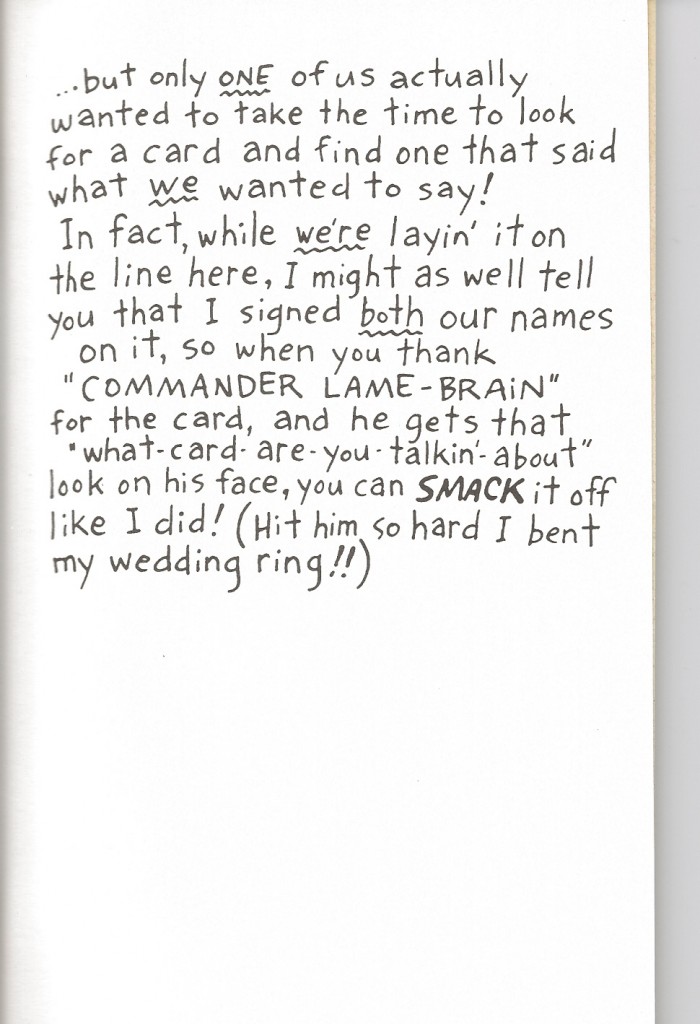 ...but only ONE of us actually
wanted to take the time to look
for a card and find one that said
what we wanted to say!
In fact, while we're layin' it on
the line here, I might as well tell
you that I signed both our names
on it, so when you thank
"COMMANDER LAME-BRAiN"
for the card, and he gets that
"what-card-are-you-talkin'-about"
look on his face, you can SMACK it off
like I did! (Hit him so hard I bent
my wedding ring!!)